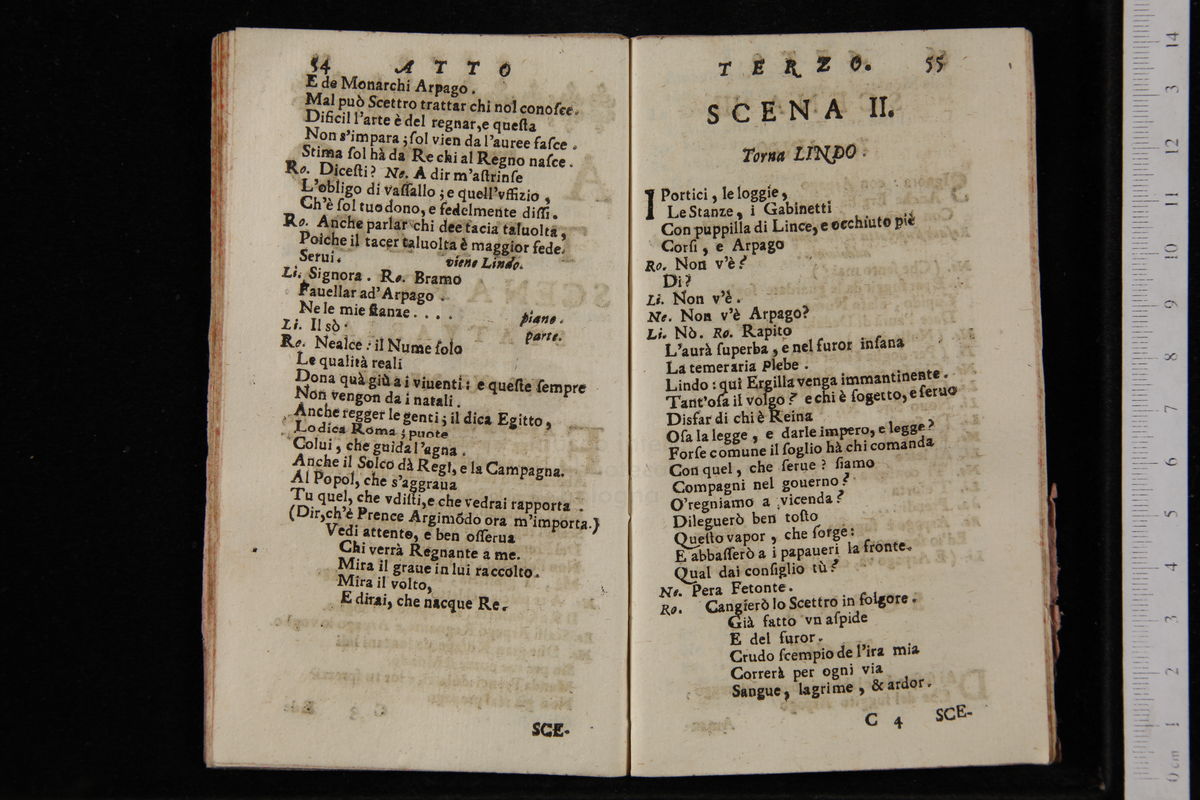 54 ATTO
E de Monarchi Arpago.
Mal può Scettro trattar chi nol conosce.
Dificil l'arte è del regnar, e questa
Non s'impara; sol vien da l'auree fasce.
Stima sol hà da Re chi al Regno nasce.
Ro. Dicesti? Ne. A dir m'astrinse
L'obligo di vassallo; e quell'vffizio,
Ch'è sol tuo dono, e fedelmente dissi.
Ro. Anche parlar chi dee tacia taluolta,
Poiche il tacer taluolta è maggior fede.
Serui. viene Lindo.
Li. Signora. Ro. Bramo
Fauellar ad'Arpago.
Ne le mie stanze.... piano.
Li. Il sò. parte.
Ro. Nealce: il Nume solo
Le qualità reali
Dona quà giù a i viuenti: e queste sempre
Non vengon da i natali.
Anche regger le genti; il dica Egitto,
Lo dica Roma; puote
Colui, che guida l'agna.
Anche il Solco dà Regl, e la Campagna.
Al Popol, che s'aggraua
Tu quel, che vdisti, e che vedrai rapporta.
(Dir, ch'è Prence Argimõdo ora m'importa.)
Vedi attento, e ben osserua
Chi verrà Regnante a me.
Mira il graue in lui raccolto.
Mira il volto,
E dirai, che nacque Re.
SCE-
TERZO. 55
SCENA II.
Torna LINDO.
I Portici, le loggie,
Le Stanze, i Gabinetti
Con puppilla di Lince, e occhiuto piè
Corsi, e Arpago
Ro. Non v'è?
Di?
Li. Non v'è.
Ne. Non v'è Arpago?
Li. Nò. Ro. Rapito
L'aurà superba, e nel furor insana
La temeraria Plebe.
Lindo: quì Ergilla venga immantinente.
Tant'osa il volgo? e chi è sogetto, e seruo
Disfar di chi è Reina
Osa la legge, e darle impero, e legge?
Forse comune il soglio hà chi comanda
Con quel, che serue? siamo
Compagni nel gouerno?
O'regniamo a vicenda?
Dileguerò ben tosto
Questo vapor, che sorge:
E abbasserò a i papaueri la fronte.
Qual dai consiglio tù?
Ne. Pera Fetonte.
Ro. Cangierò lo Scettro in folgore.
Già fatto vn aspide
E del furor.
Crudo scempio de l'ira mia
Correrà per ogni via
Sangue, lagrime, & ardor.
C 4 SCE-